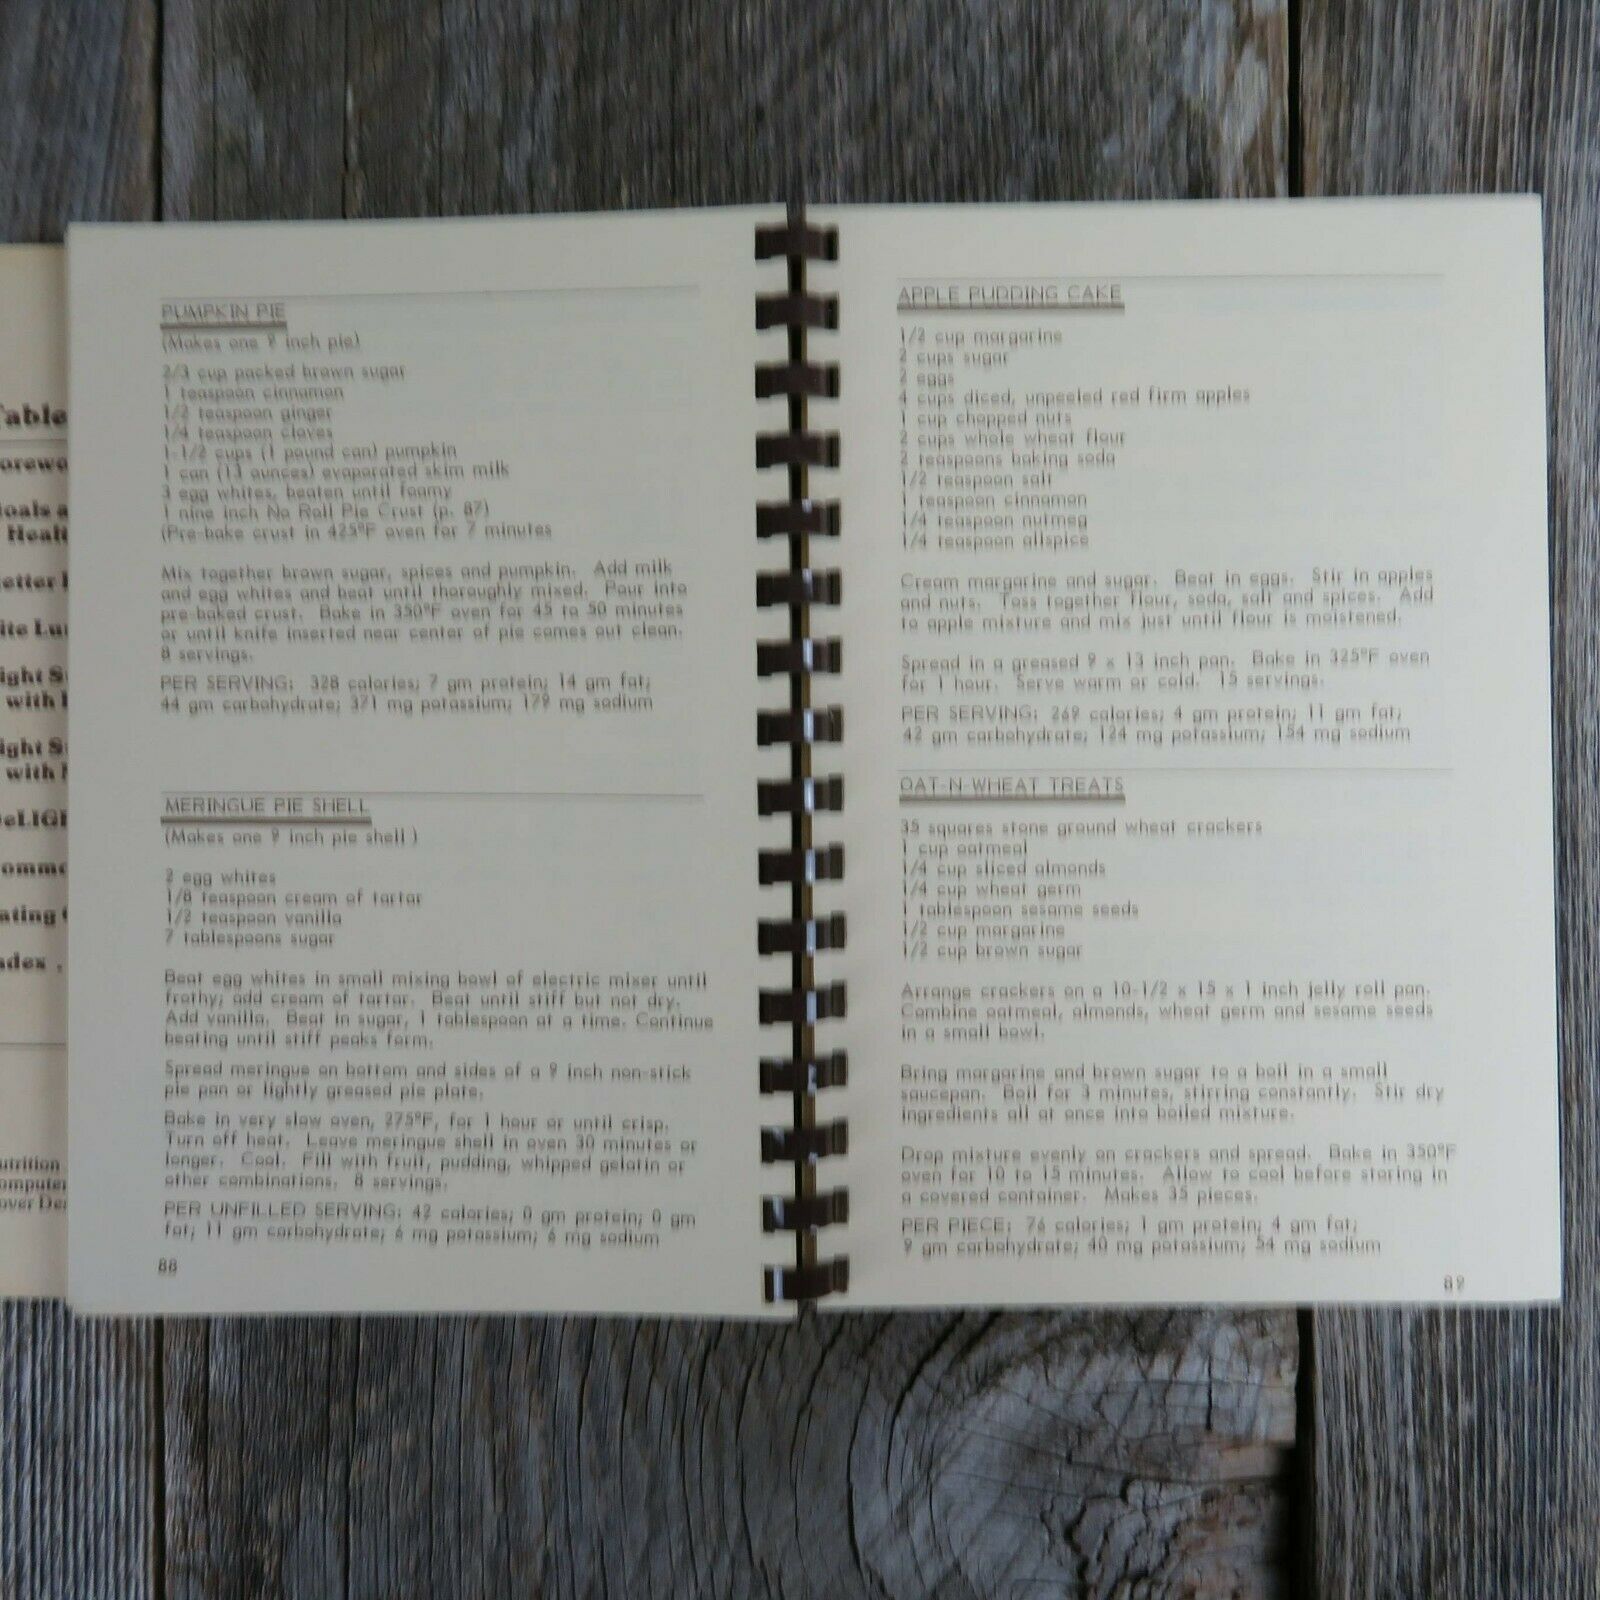 Table
PUMPKIN PIE
(Makes one 9 inch pie)
2/3 cup packed brown sugar
1 teaspoon cinnamon
1/2 teaspoon ginger
1/4 teaspoon cloves
1-1/2 cups (1 pound can) pumpkin
1 can (13 ounces) evaporated skim milk
3 egg whites, beaten until foamy
1 nine inch No Roll Pie Crust (p. 87)
(Pre-bake crust in 425°F oven for 7 minutes
Mix together brown sugar, spices and pumpkin. Add milk
and egg whites and beat until thoroughly mixed. Pour into
pre-baked crust. Bake in 350°F oven for 45 to 50 minutes
or until knife inserted near center of pie comes out clean.
8 servings.
PER SERVING: 328 calories; 7 gm protein; 14 gm fat;
44 gm carbohydrate; 371 mg potassium; 179 mg sodium
MERINGUE PIE SHELL
(Makes one 9 inch pie shell )
2 egg whites
1/8 teaspoon cream of tartar
1/2 teaspoon vanilla
7 tablespoons sugar
Beat egg whites in small mixing bowl of electric mixer until
frothy; add cream of tartar. Beat until stiff but not dry.
Add vanilla. Beat in sugar, 1 tablespoon at a time. Continue
beating until stiff peaks form.
Spread meringue on bottom and sides of a 9 inch non-stick
pie pan or lightly greased pie plate.
Bake in very slow oven, 275°F, for 1 hour or until crisp.
Turn off heat. Leave meringue shell in oven 30 minutes or
longer. Cool. Fill with fruit, pudding, whipped gelatin or
other combinations. 8 servings.
PER UNFILLED SERVING: 42 calories; 0 gm protein; 0 gm
fat; 11 gm carbohydrate; 6 mg potassium; 6 mg sodium
88
APPLE PUDDING CAKE
1/2 cup margarine
2 cups sugar
2 eggs
4 cups diced, unpeeled red firm apples
1 cup chopped nuts
2 cups whole wheat flour
2 teaspoons baking soda
1/2 teaspoon salt
1 teaspoon cinnamon
1/4 teaspoon nutmeg
1/4 teaspoon allspice
Cream margarine and sugar. Beat in eggs. Stir in apples
and nuts. Toss together flour, soda, salt and spices. Add
to apple mixture and mix just until flour is moistened.
Spread in a greased 9 x 13 inch pan. Bake in 325°F oven
for 1 hour. Serve warm or cold. 15 servings.
PER SERVING: 269 calories; 4 gm protein; 11 gm fat;
42 gm carbohydrate; 124 mg potassium; 154 mg sodium
OAT-N-WHEAT TREATS
35 squares stone ground wheat crackers
1 cup oatmeal
1/4 cup sliced almonds
1/4 cup wheat germ
1 tablespoon sesame seeds
1/2 cup margarine
1/2 cup brown sugar
Arrange crackers on a 10-1/2 x 15 x 1 inch jelly roll pan.
Combine oatmeal, almonds, wheat germ and sesame seeds
in a small bowl.
Bring margarine and brown sugar to a boil in a small
saucepan. Boil for 3 minutes, stirring constantly. Stir dry
ingredients all at once into boiled mixture.
Drop mixture evenly on crackers and spread. Bake in 350°F
oven for 10 to 15 minutes. Allow to cool before storing in
a covered container. Makes 35 pieces.
PER PIECE: 76 calories; 1 gm protein; 4 gm fat;
9 gm carbohydrate; 40 mg potassium; 54 mg sodium
89